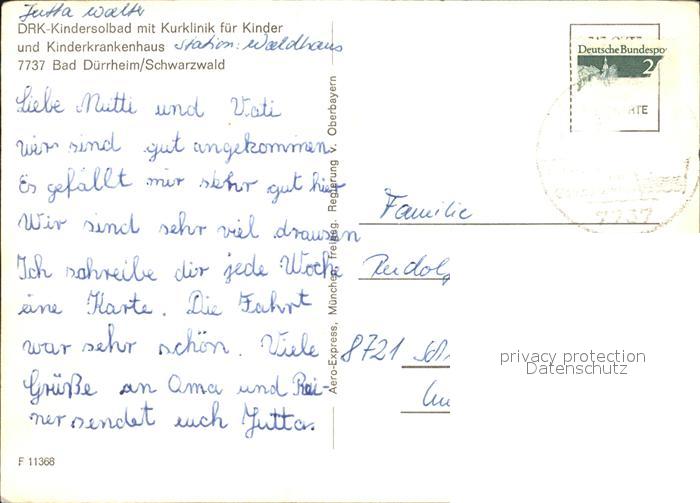 Jutta Walter
DRK-Kindersolbad mit Kurklinik für Kinder
und Kinderkrankenhaus Station: Waldhaus
7737 Bad Dürrheim/Schwarzwald
Liebe Mutti und Vati
wir sind gut angekommen
Es gefällt mir sehr gut hier
Wir sind sehr viel drausen
Ich schreibe dir jede Woche
eine Karte. Die Fahrt
war sehr schön. Viele
Grüße an Oma und Rai-
ner sendet euch Jutta.
F 11368
Aero-Express, München, freigeg. Regierung v. Oberbayern
Deutsche Bundespo
2
7737
Familie
Rudol
8721
privacy protection
Datenschutz